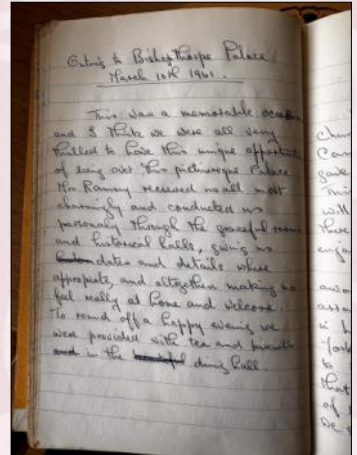 Outing to Bishopthorpe Palace
March 10th 1961.
This was a memorable occasion
and I think we were all very
thrilled to have this unique opportunity
of going over this picturesque Palace
Mrs Ramsey received us all most
charmingly and conducted us
personally through the graceful rooms
and historical halls, giving us
dates and details where
appropriate, and altogether making us
feel really at home and welcome.
To round off a happy evening we
were provided with tea and biscuits
and in the dining hall.